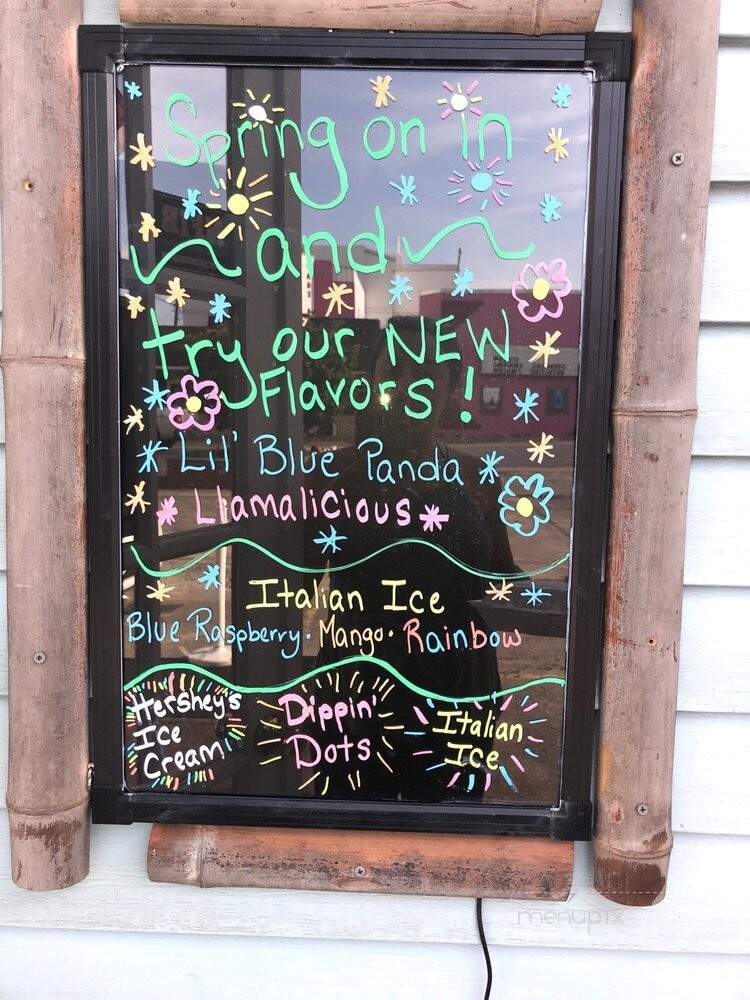 Spring on in
and
try our NEW
Flavors!
Lil' Blue Panda
Llamalicious
Italian Ice
Blue Raspberry · Mango · Rainbow
Hershey's
Ice
Cream
Dippin'
Dots
Italian
Ice
menupix